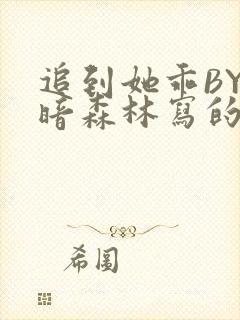 追到她乖BY
暗森林寫的
希圖